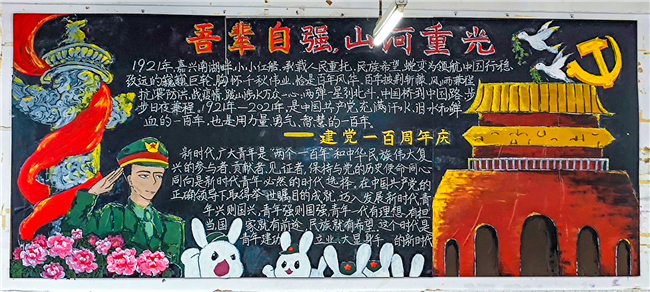 吾辈自强,山河重光
1921年,嘉兴南湖畔,小小红船,承载人民重托,民族希望,蜕变为领航中国行稳
致远的巍巍巨轮,胸怀千秋伟业,恰是百年风华,百年披荆斩棘,风雨兼程
抗震防洪,战疫情,踏山涉水万众一心,满弹一星到北斗,中国桥到中国路,步
步日夜兼程,1921年—2021年,是中国共产党充满汗水,泪水和鲜
血的一百年,也是用力量,勇气,智慧的一百年.
——建党一百周年庆
新时代,广大青年是"两个一百年"和中华民族伟大复
兴的参与者,贡献者,见证者,保持与党的历史使命同心
同向是新时代青年必然的时代选择,在中国共产党的
正确领导下取得举世瞩目的成就,迈入发展新时代,青
年兴则国兴,青年强则国强,青年一代有理想,有担
当,国家就有前途,民族就有希望,这个时代是
青年建功立业,大显身手的新时代